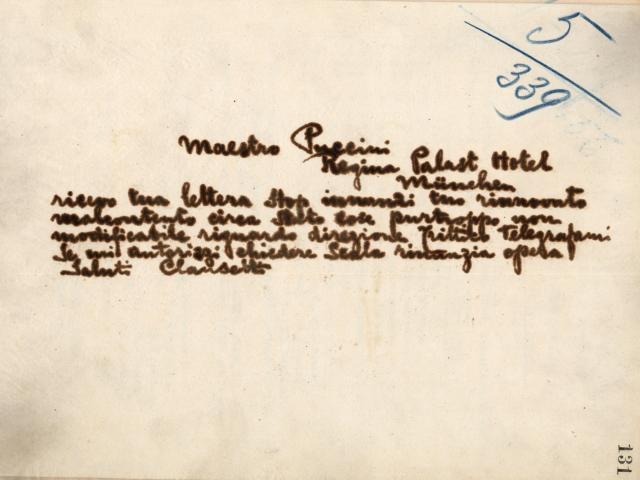 5
339
Maestro Puccini
Regina Palast Hotel
München
ricevo tua lettera Stop innanzi tuo rinnovato
malcontento circa stato cose purtroppo non
modificabile riguardo direzione Trittico Telegrafami
Se mi autorizzi chiedere Scala rinunzia opera
Saluti Clausetti
131